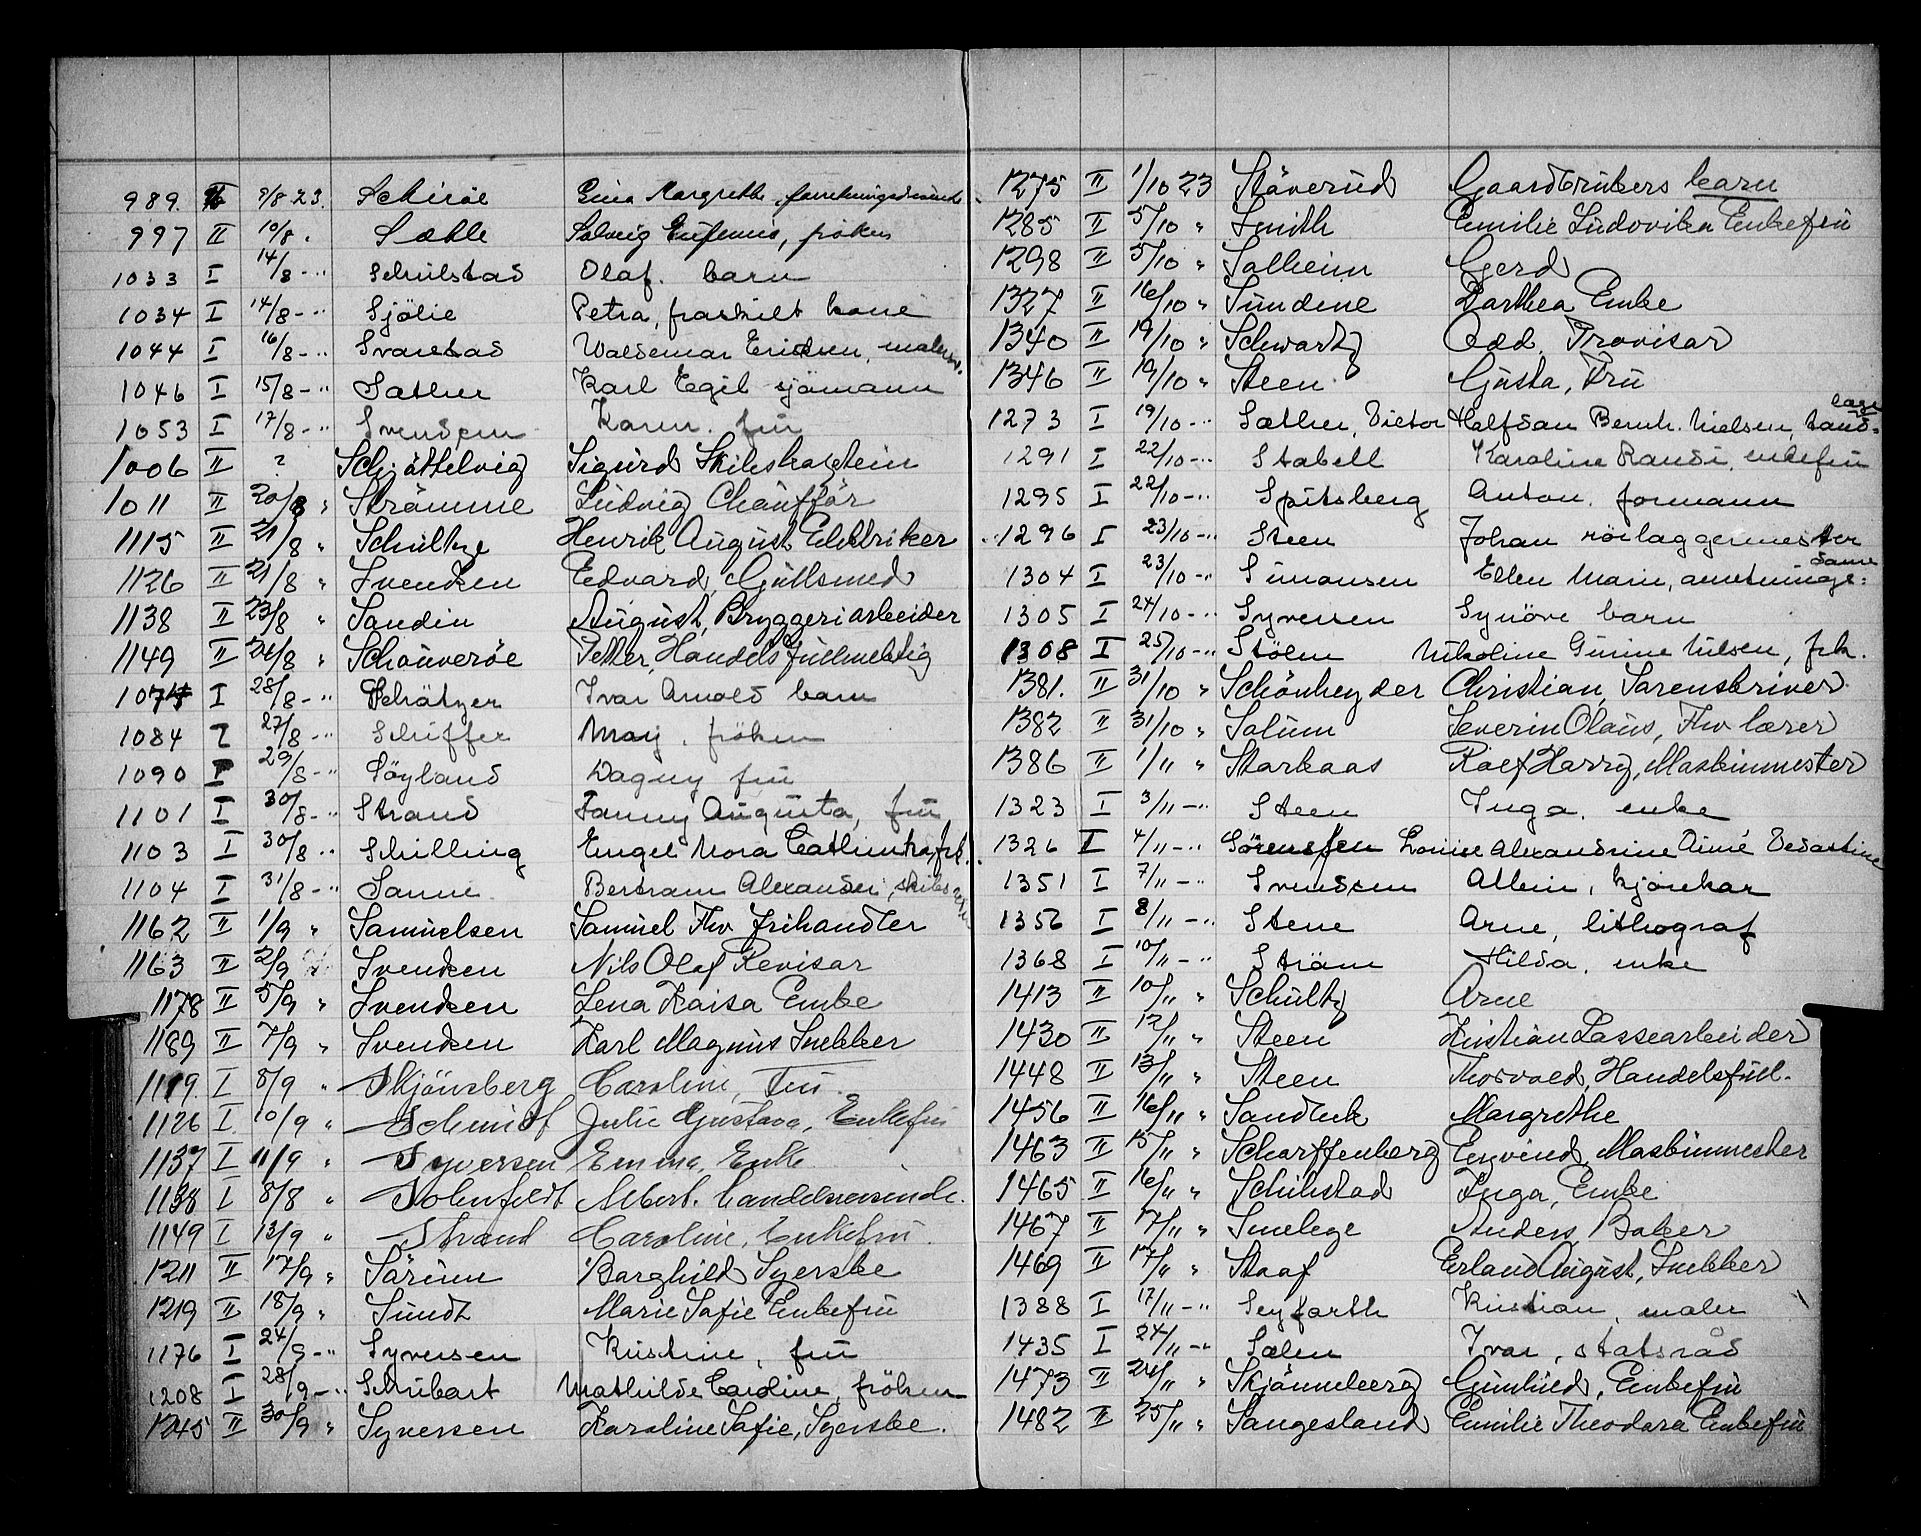 989. II 9/8 23. Schiröe Margrethe, forretningsdrivende
997 II 10/8 " Sæthle Solveig Eufemia, fröken
1033 I 14/8 - " Schulstad Olaf. barn
1034 I 14/8 - " Sjölie Petra, fraskilt kone
1044 I 16/8 - " Svarstad Waldemar Ericksen, malerm.
1046 I 15/8 - " Sæther Karl Egil sjömann
1053 I 17/8 - " Svendsen Karen. frü
1006 II ? Schjöttelvig Sigurd Skibskaptein
1011 II 20/8 " Strömme Ludvig Chaufför
1115 II 21/8 " Schultze Henrik August Elektriker
1126 II 21/8 " Svendsen Edvard, Gullsmed
1138 II 23/8 " Sandin August, Bryggeriarbeider
1149 II 26/8 " Schouveröe Petter, Handelsfullmektig
1074 I 28/8 - " Schätzer Ivar Arnold barn
1084 I 27/8 - " Schiffer May, fröken
1090 I 29/8 - " Söyland Dagny frü
1101 I 30/8 - " Strand Fanny Augusta, frü
1103 I 30/8 - " Schilling Engel Nora Cathinka, frk.
1104 I 31/8 - " Sanne Bertram Alexander, skibs
1162 II 1/9 " Samuelsen Samuel Thv frihandler
1163 II 2/9 " Svendsen Nils Olaf Revisor
1178 II 5/9 " Svendsen Lena Kaisa Enke
1189 II 7/9 " Svendsen Karl Magnus Snekker
1119. I 8/9 " Skjönsberg Caroline, Fru.
1126 I. 10/9 " Schmidt Julie Gustava, Enkefru
1137 I 11/9 " Syversen Emma, Enke
1138 I 8/8 " Solenfeldt Albert. handelsreisende.
1149 I 13/9 " Strand Caroline, Enkefru.
1211 II 17/9 " Sörum Borghild Syerske
1219 II 18/9 " Sundt Marie Sofie Enkefru
1176 I 24/9 - " Syversen Kristine, frü
1208 I 28/9 - " Schubart Mathilde Caroline, fröken
1245 II 30/9 " Syversen Karoline Sofie, Syerske.
1275 II 1/10 23 Stöverud Gaardbrukers barn
1285 II 5/10 " Smith Emilie Ludovika Enkefru
1298 II 5/10 " Solheim Gerd
1327 II 16/10 " Sundine Dorthea Enke
1340 II 19/10 " Schwartz Odd, Provisor
1346 II 19/10 " Steen Gusta, Fru
1273 I 19/10 - " Sæther, Victor Halfdan Bernh. Nielsen, tand-
læge
1291 I 22/10 - " Stabell Karoline Randi, enkefru
1295 I 22/10 - " Spitsberg Anton. formann
1296 I 23/10 - " Steen Johan rörlæggermester
1304 I 23/10 - " Simonsen Ellen Marie, anretnings-
dame
1305 I 24/10 - " Syversen Synöve barn
1308 I 25/10 - " Stölen Nikoline Gurine Nilsen, frk.
1381. II 31/10 " Schönheyder Christian, Sorenskriver.
1382 II 31/10 " Solum Severin Olaus, Fhv lærer
1386 II 1/11 " Storkaas Rolf Harry, Maskinmester
1323 I 3/11 - " Steen Inga. enke
1326 I 4/11 - " Sörenssen Louise Alexandrine Aimé Vedastine
1351 I 7/11 - " Svendsen Albin, kjörekar
1356 I 8/11 - " Stene Arne, lithograf
1368 I 10/11 - " Ström Hilda, enke
1413 II 10/11 " Schultz Arne
1430 II 12/11 " Steen Kristian Lossearbeider
1448 II 13/11 " Steen Thorvald, Handelsfull.
1456 II 16/11 " Sandbek Margrethe
1463 II 15/11 " Scharffenberg Eyvind, Maskinmester
1465 II 16/11 " Schulstad Inga, Enke
1467 II 17/11 " Smelege Anders, Baker
1469 II 17/11 " Staaf Erland August, Snekker
1388 I 17/11 - " Seyfarth Kristian, maler
1435 I 24/11 - " Sælen Ivar, statsråd
1473 II 24/11 " Skjönneberg Gunhild, Enkefru
1482 II 25/11 " Sangesland Emilie Theodora Enkefru